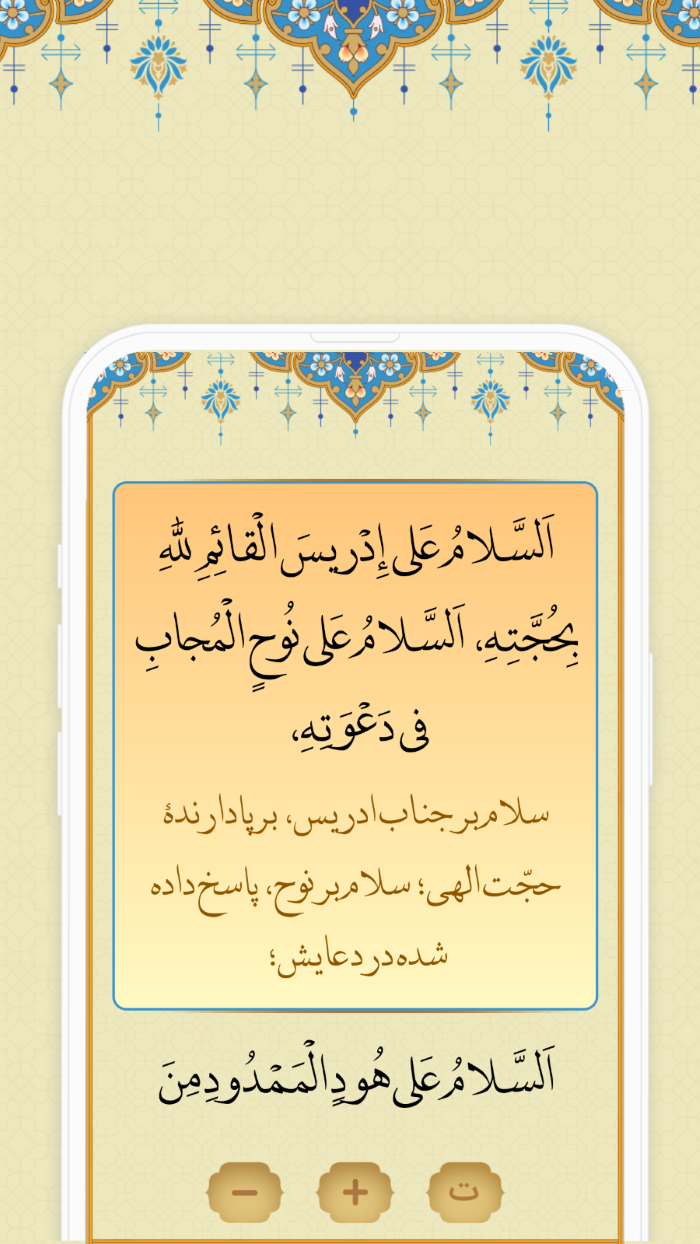 اَلسَّلامُ عَلى إِدْريسَ الْقائِمِ لِلّٰهِ
بِحُجَّتِهِ، اَلسَّلامُ عَلى نُوحٍ الْمُجابِ
فى دَعْوَتِهِ،
سلام بر جناب ادریس، برپادارندهٔ
حجّت الهی؛ سلام بر نوح، پاسخ داده
شده در دعایش؛
اَلسَّلامُ عَلى هُودٍ الْمَمْدُودِ مِنَ
ت + −